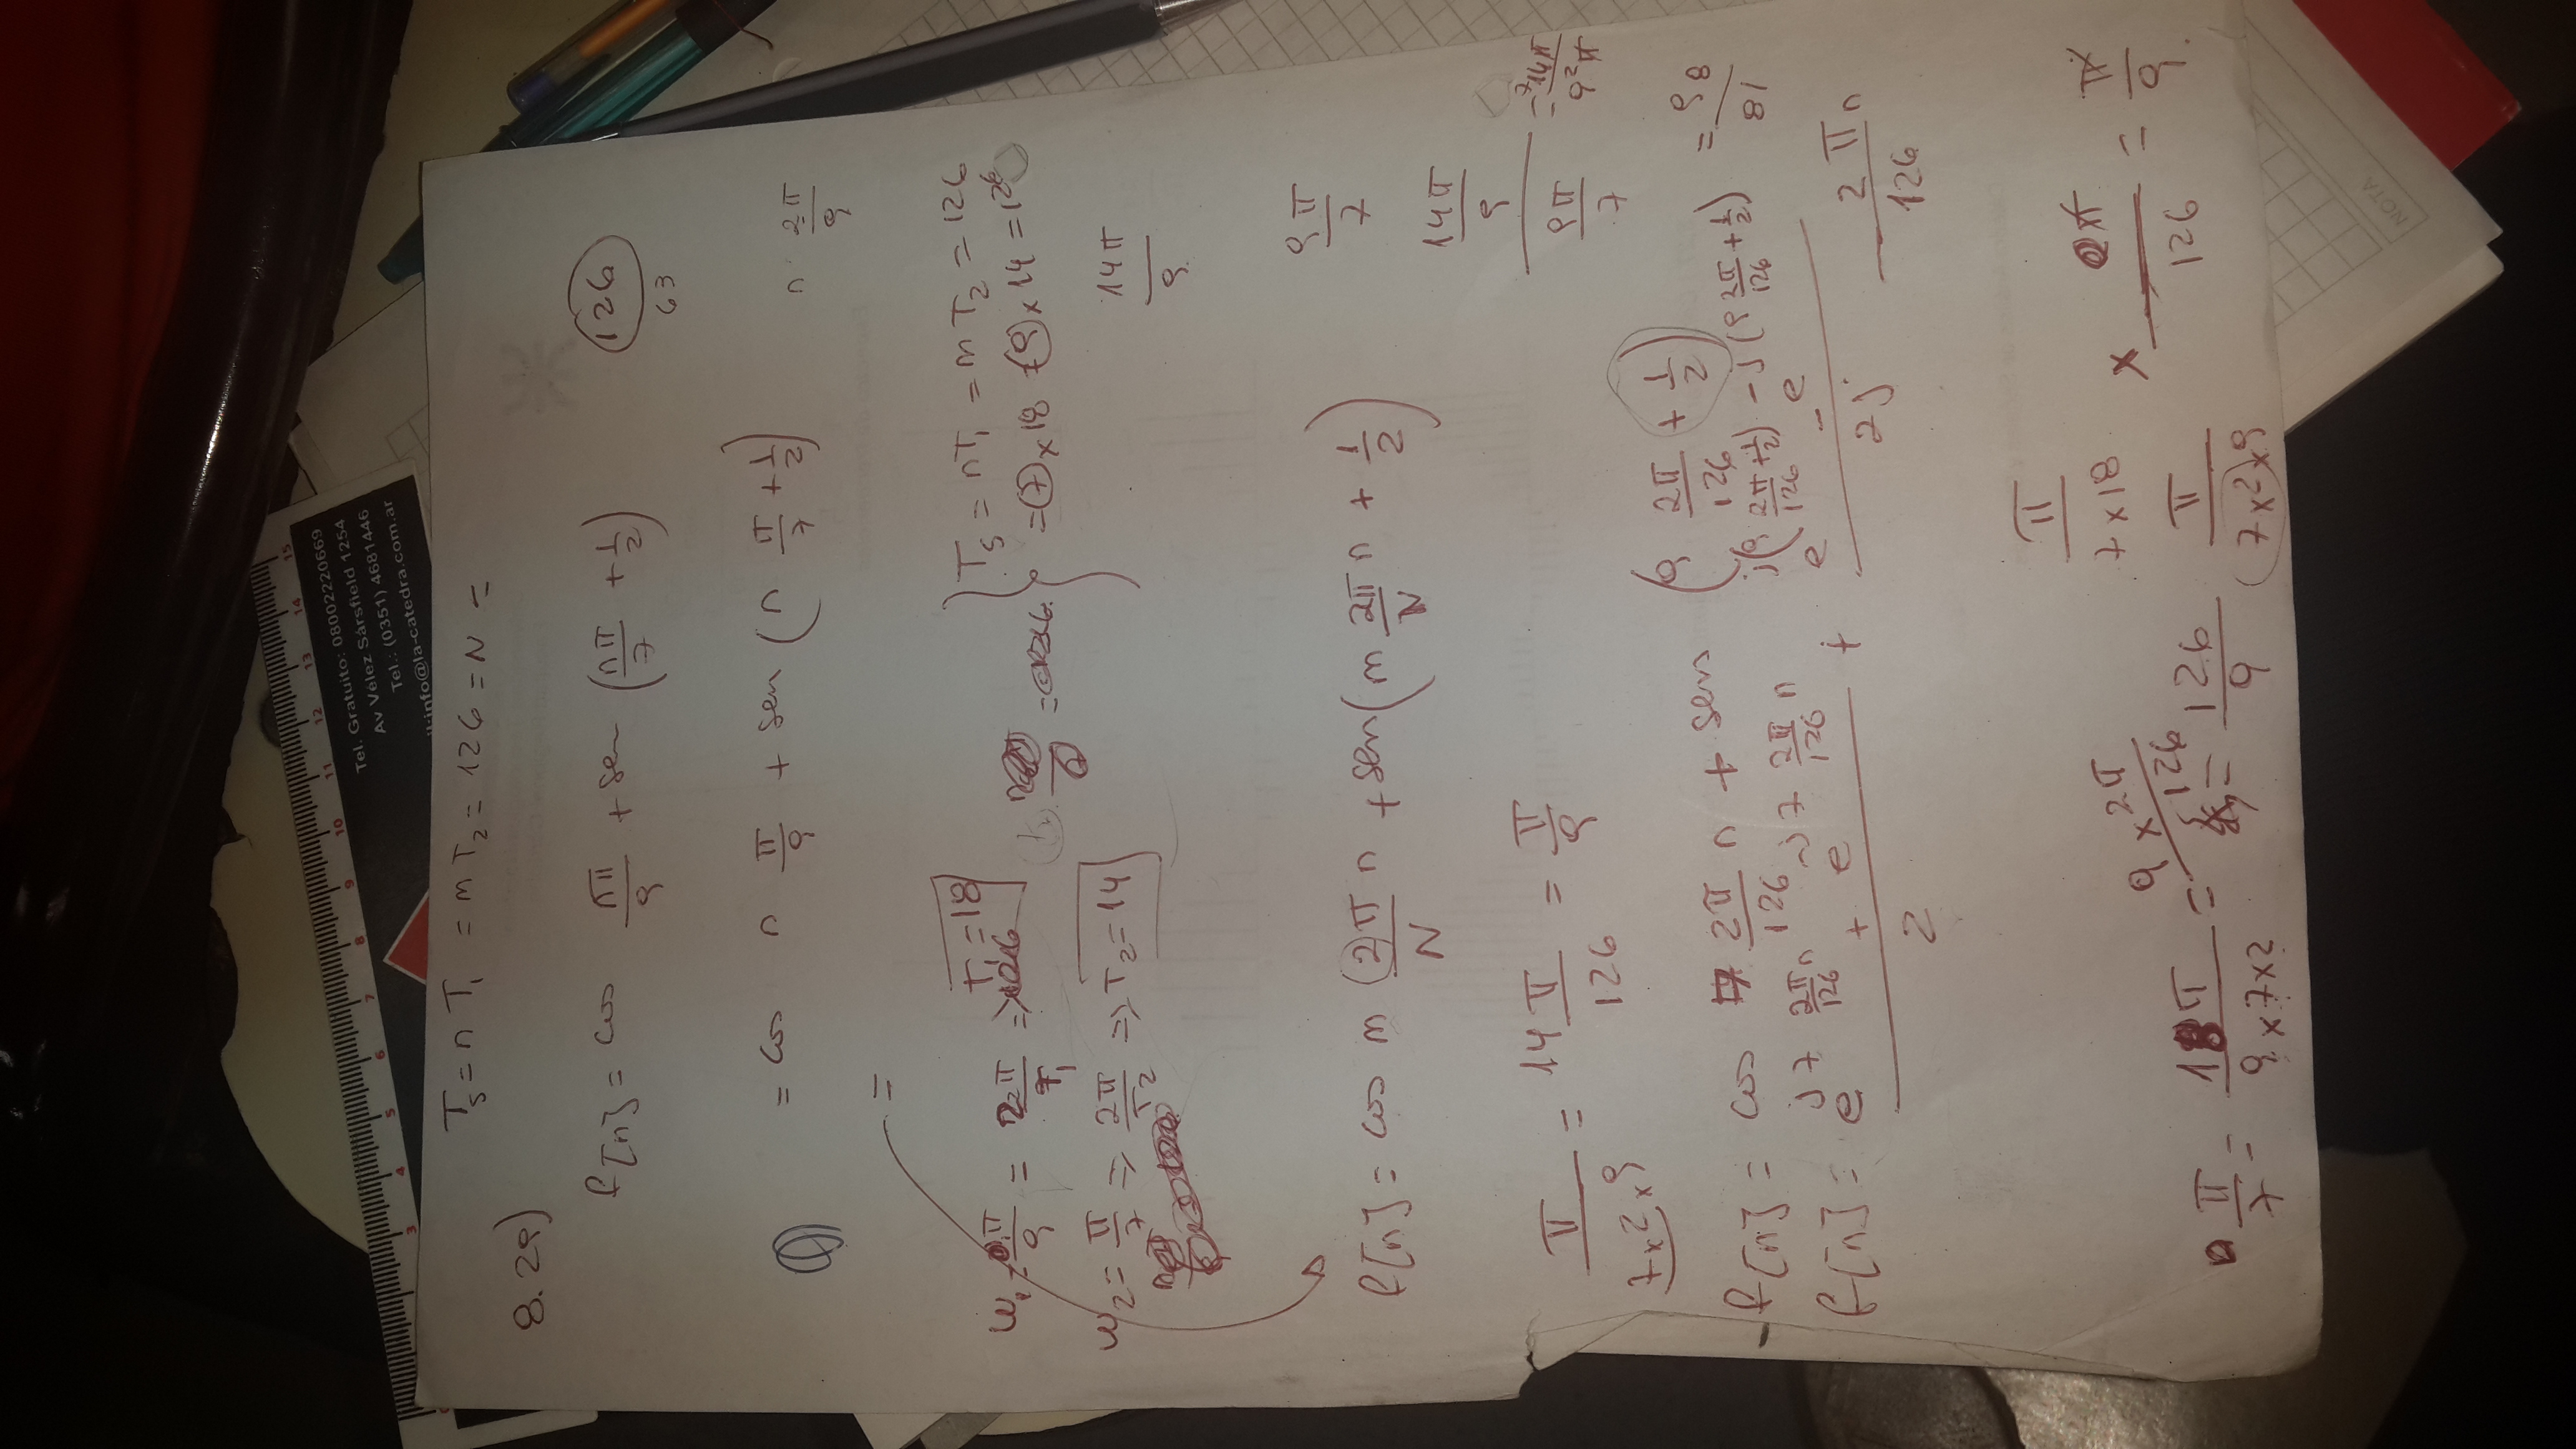 0 3 4 5 6 7 8 9 10 11 12 13 14 15
Tel. Gratuito: 08002220669
Av Vélez Sársfield 1254
Tel.: (0351) 4681446
il:info@la-catedra.com.ar
T_s = n T_1 = m T_2 = 126 = N =
8.29)
f[n] = cos nπ/9 + sen (nπ/7 + 1/2)
126
63
= cos n π/9 + sen (n π/7 + 1/2)
n 2π/9
=
T_1 = 18
w_1 = π/9 = 2π/T_1 =>
T_s = nT_1 = mT_2 = 126
= 7 x 18 = 9 x 14 = 126
w_2 = π/7 => 2π/T2 => T_2 = 14
14π/9
9π/7
f[n] = cos m 2π/N n + sen (m 2π/N n + 1/2)
14π/9 / 9π/7 = 7 14π / 9² π
π/(7x2x9) = 14π/126 = π/9
= 98/81
f[n] = cos 7 2π/126 n + sen (9 2π/126 + 1/2)
f[n] = (e^(j7 2π/126 n) + e^(-j7 2π/126 n))/2 + (e^(j(9 2π/126 + 1/2)) - e^(-j(9 2π/126 + 1/2)))/2j
2πn/126
π/(7x18)
x π/126 = π/9
π/7 = 18π/(9x7x2) = 9 x 2π/126
= 126/9
π/(7x2)x9
NOTA